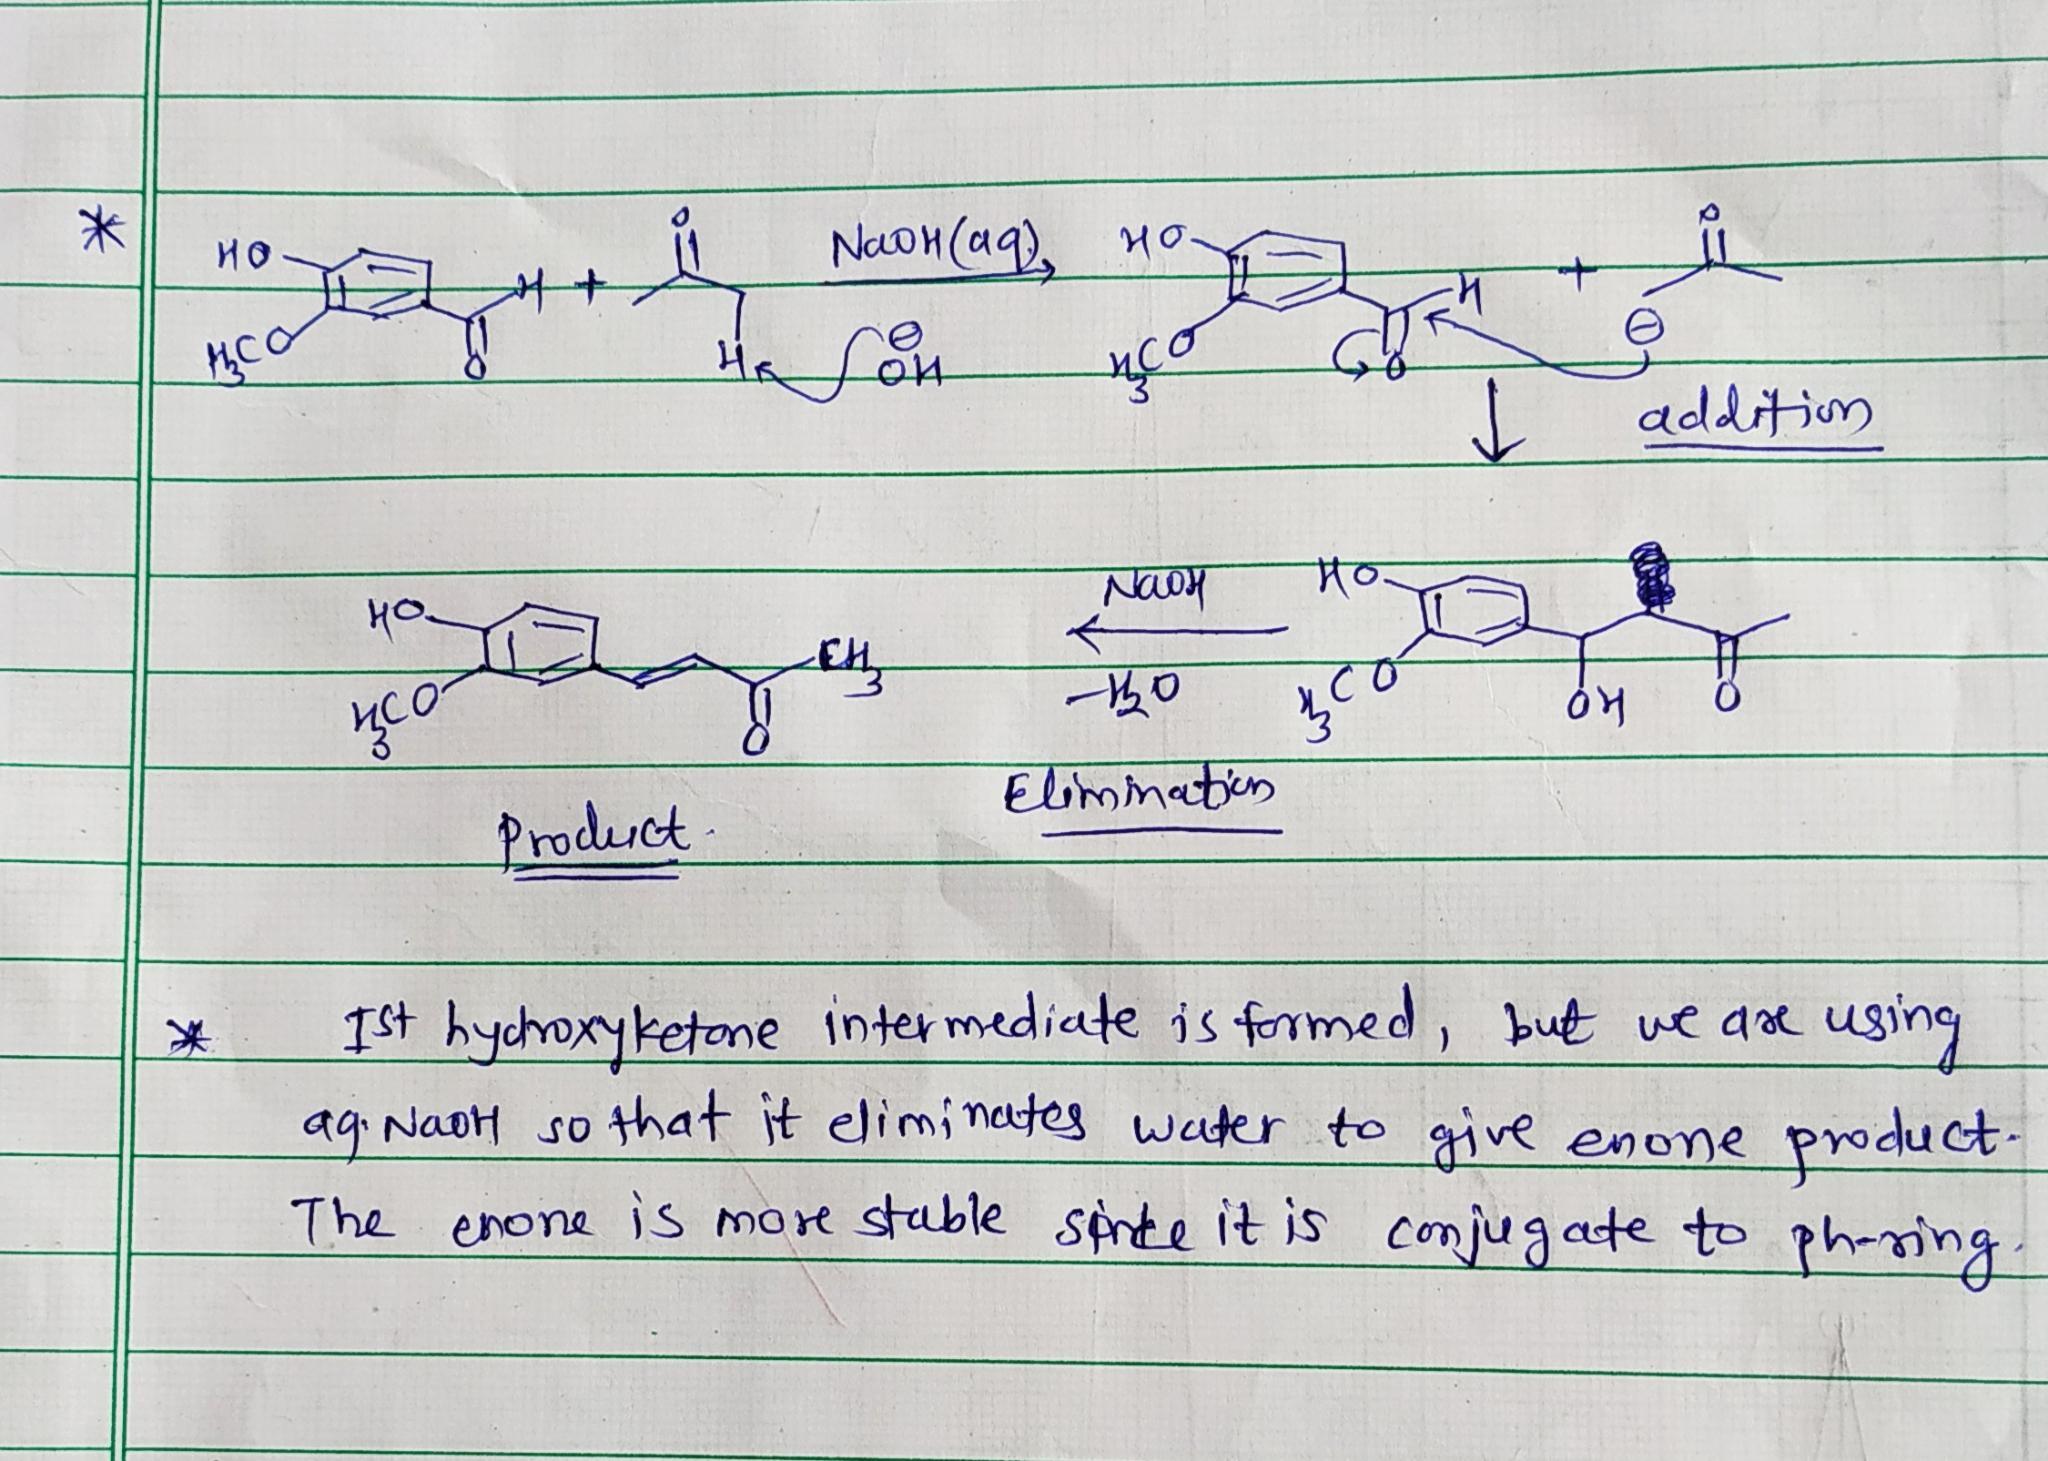 *
HO
H
+
O
NaOH(aq)
HO
H
+
O
H3CO
O
H
⊖
OH
H3CO
O
⊖
addition
HO
CH3
NaOH
HO
H3CO
O
-H2O
H3CO
OH
O
Elimination
Product.
* Ist hydroxyketone intermediate is formed, but we are using
aq. NaOH so that it eliminates water to give enone product.
The enone is more stable since it is conjugate to ph-ring.